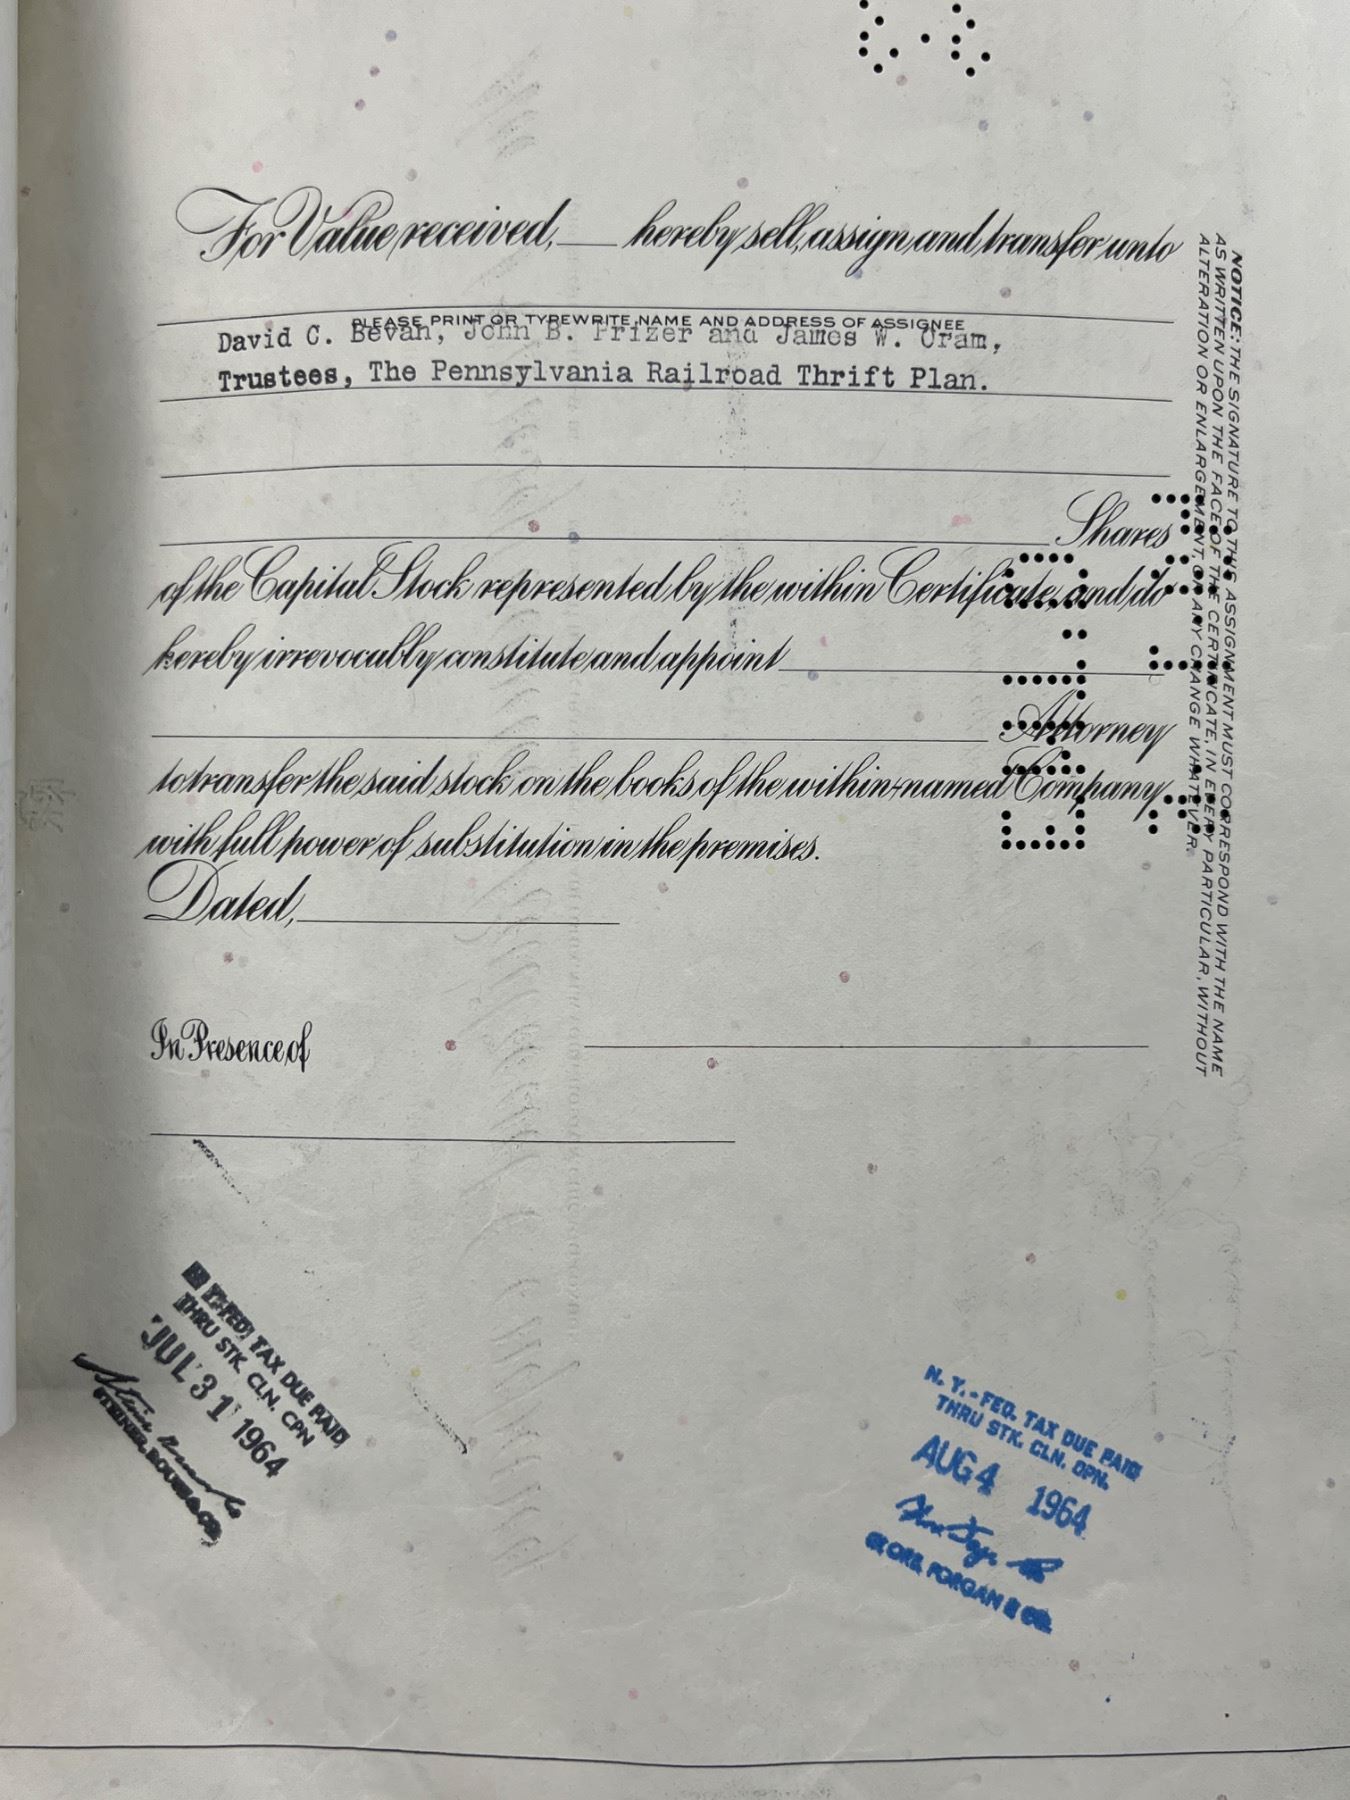 For Value received, ____ hereby sell, assign and transfer unto
PLEASE PRINT OR TYPEWRITE NAME AND ADDRESS OF ASSIGNEE
David C. Bevan, John B. Prizer and James W. Oram,
Trustees, The Pennsylvania Railroad Thrift Plan.
Shares
of the Capital Stock represented by the within Certificate, and do
hereby irrevocably constitute and appoint
Attorney
to transfer the said stock on the books of the within-named Company
with full power of substitution in the premises.
Dated,
In Presence of
NOTICE: THE SIGNATURE TO THIS ASSIGNMENT MUST CORRESPOND WITH THE NAME
AS WRITTEN UPON THE FACE OF THE CERTIFICATE, IN EVERY PARTICULAR, WITHOUT
ALTERATION OR ENLARGEMENT, OR ANY CHANGE WHATEVER.
FED. TAX DUE PAID
THRU STK. CLN. CPN
JUL 31 1964
STEINER, ROUSE & CO.
N. Y. - FED. TAX DUE PAID
THRU STK. CLN. CPN.
AUG 4 1964
GLORE, FORGAN & CO.